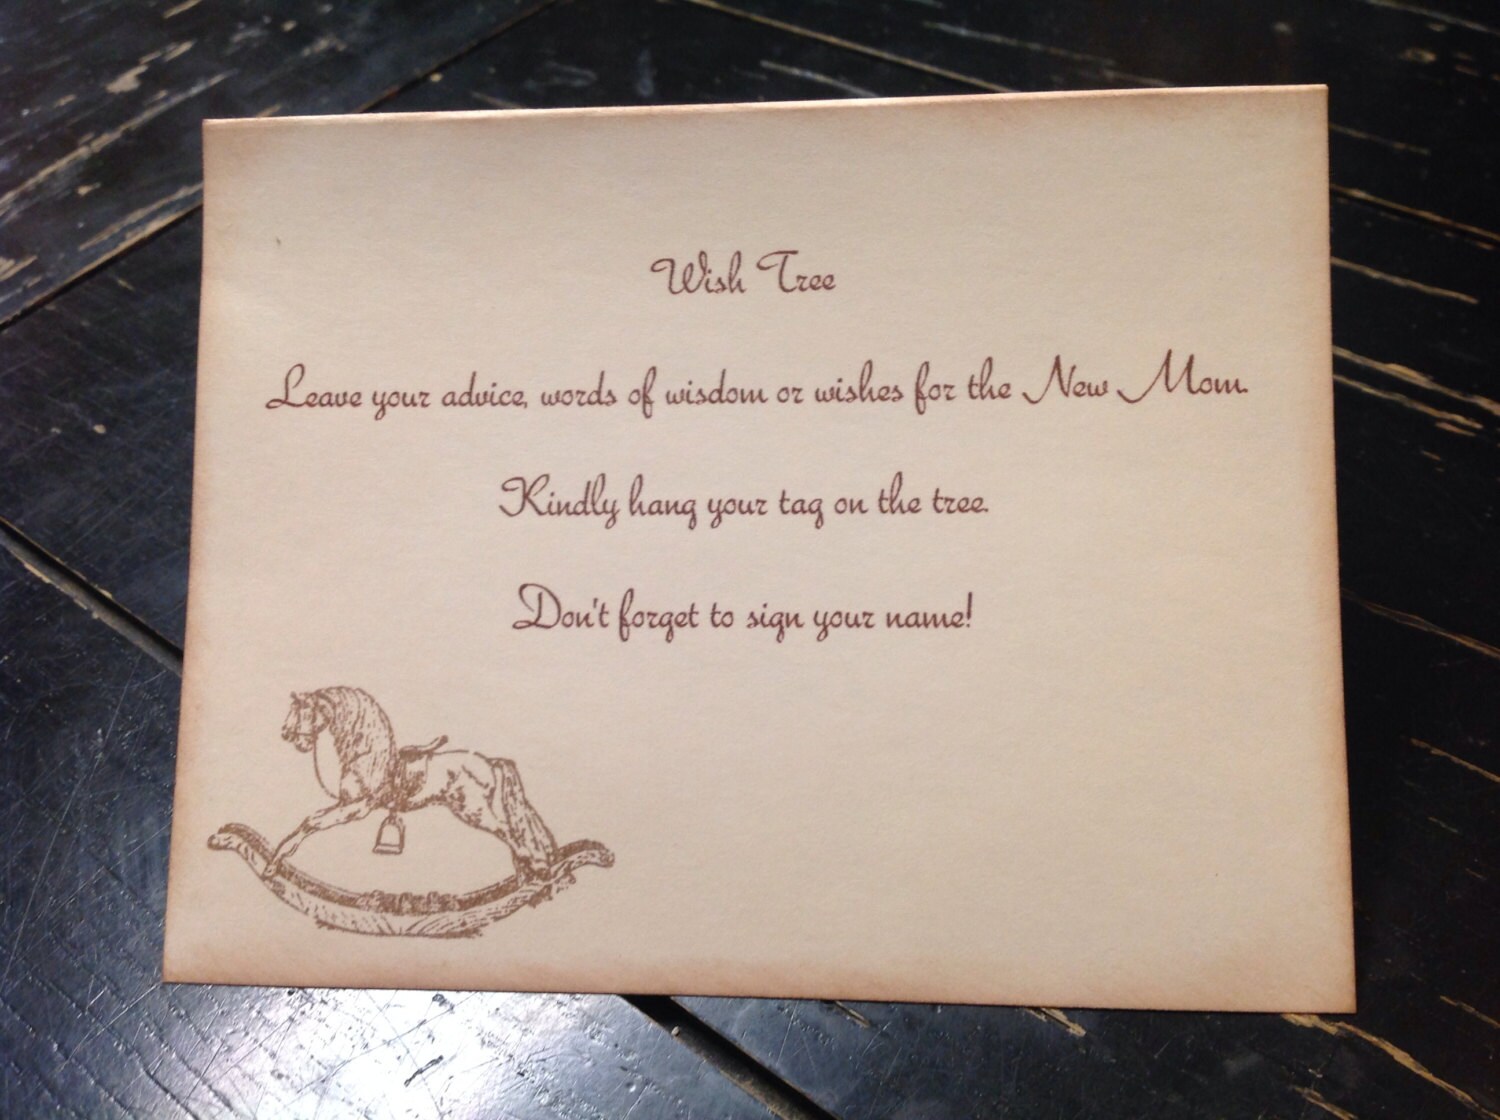 Wish Tree
Leave your advice, words of wisdom or wishes for the New Mom.
Kindly hang your tag on the tree.
Don't forget to sign your name!